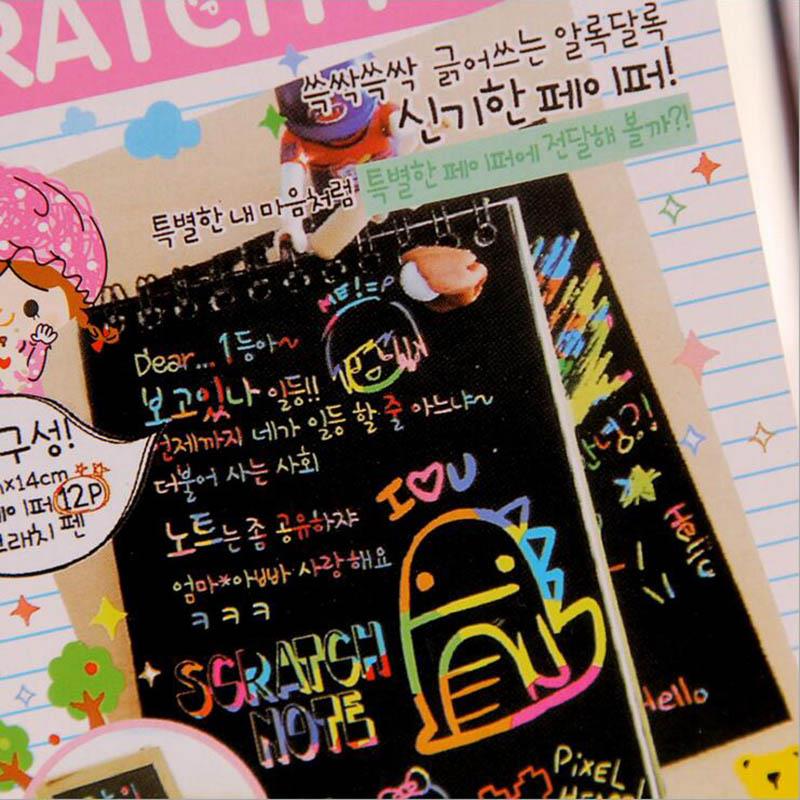 쓱싹쓱싹 긁어쓰는 알록달록
신기한 페이퍼!
특별한 내 마음처럼 특별한 페이퍼에 전달해 볼까?!
ME!=
Dear... 1등아~
보고있나 일등!!
언제까지 네가 일등 할 줄 아느냐~
더불어 사는 사회
노트는 좀 공유하쟈
엄마*아빠 사랑해요
ㅋㅋㅋ
I♡U
SCRATCH
NOTE
PiXEL
안녕?!
Hello
Hello
구성!
x14cm
12P
펜